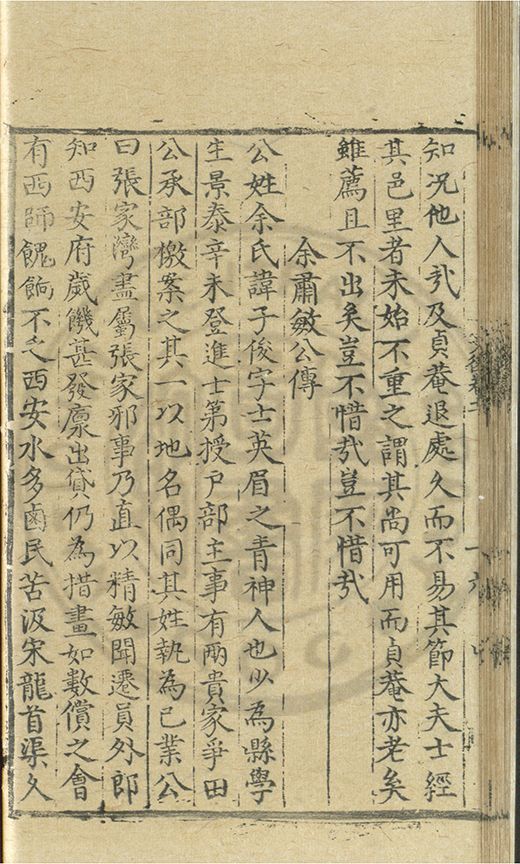 知況他人㢤及貞菴退處久而不易其節大夫士經
其邑里者未始不重之謂其尚可用而貞菴亦老矣
雖薦且不出矣豈不惜㢤豈不惜㢤
余肅敏公傳
公姓余氏諱子俊字士英眉之青神人也少為縣學
生景泰辛未登進士第授戶部主事有兩貴家爭田
公承部檄案之其一以地名偶同其姓執為己業公
曰張家灣盡屬張家邪事乃直以精敏聞遷員外郎
知西安府歲饑甚發廪出貸仍為措畫如數償之會
有西師餽餉不乏西安水多鹵民苦汲宋龍首渠久